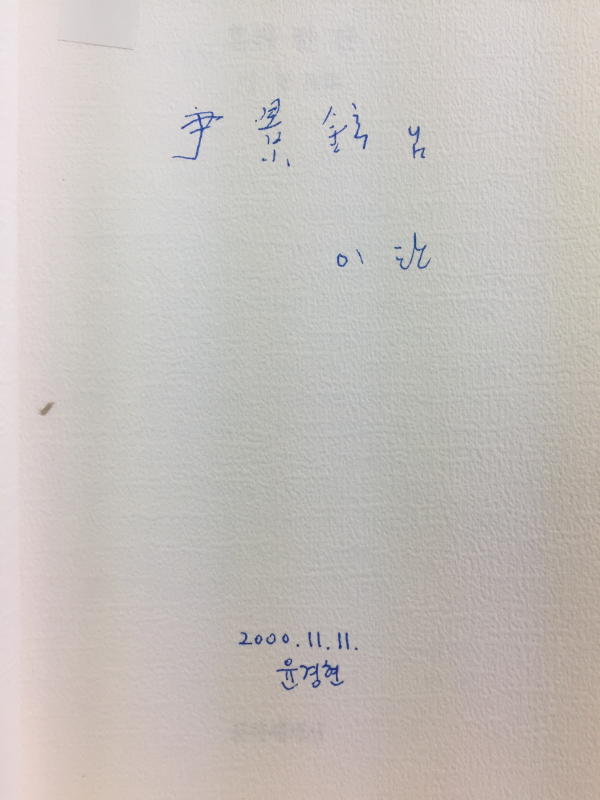 尹景鉉 님
이 탄
2000.11.11.
윤경현